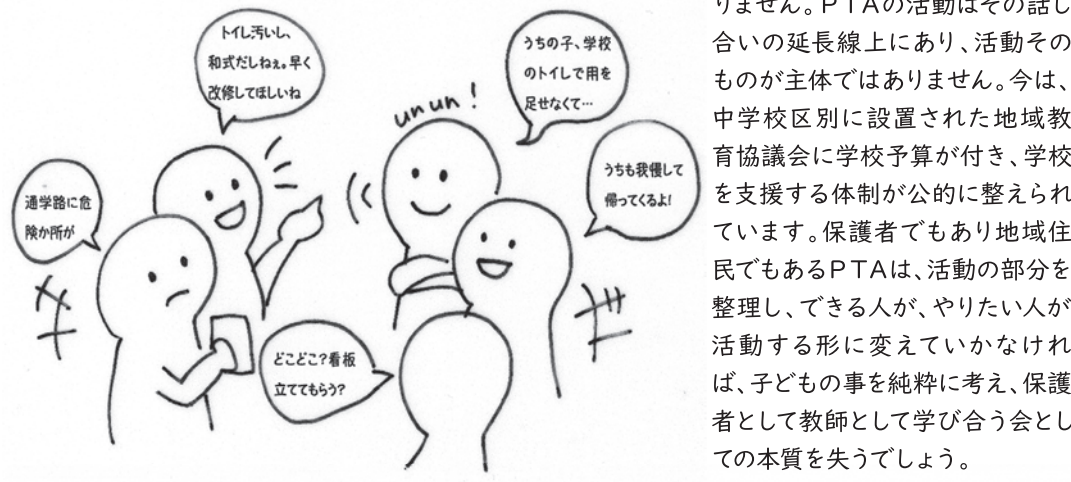 トイレ汚いし、
和式だしねぇ。早く
改修してほしいね
un un !
うちの子、学校
のトイレで用を
足せなくて…
うちも我慢して
帰ってくるよ!
通学路に危
険か所が
どこどこ?看板
立ててもらう?
りません。PTAの活動はその話し
合いの延長線上にあり、活動その
ものが主体ではありません。今は、
中学校区別に設置された地域教
育協議会に学校予算が付き、学校
を支援する体制が公的に整えられ
ています。保護者でもあり地域住
民でもあるPTAは、活動の部分を
整理し、できる人が、やりたい人が
活動する形に変えていかなけれ
ば、子どもの事を純粋に考え、保護
者として教師として学び合う会とし
ての本質を失うでしょう。